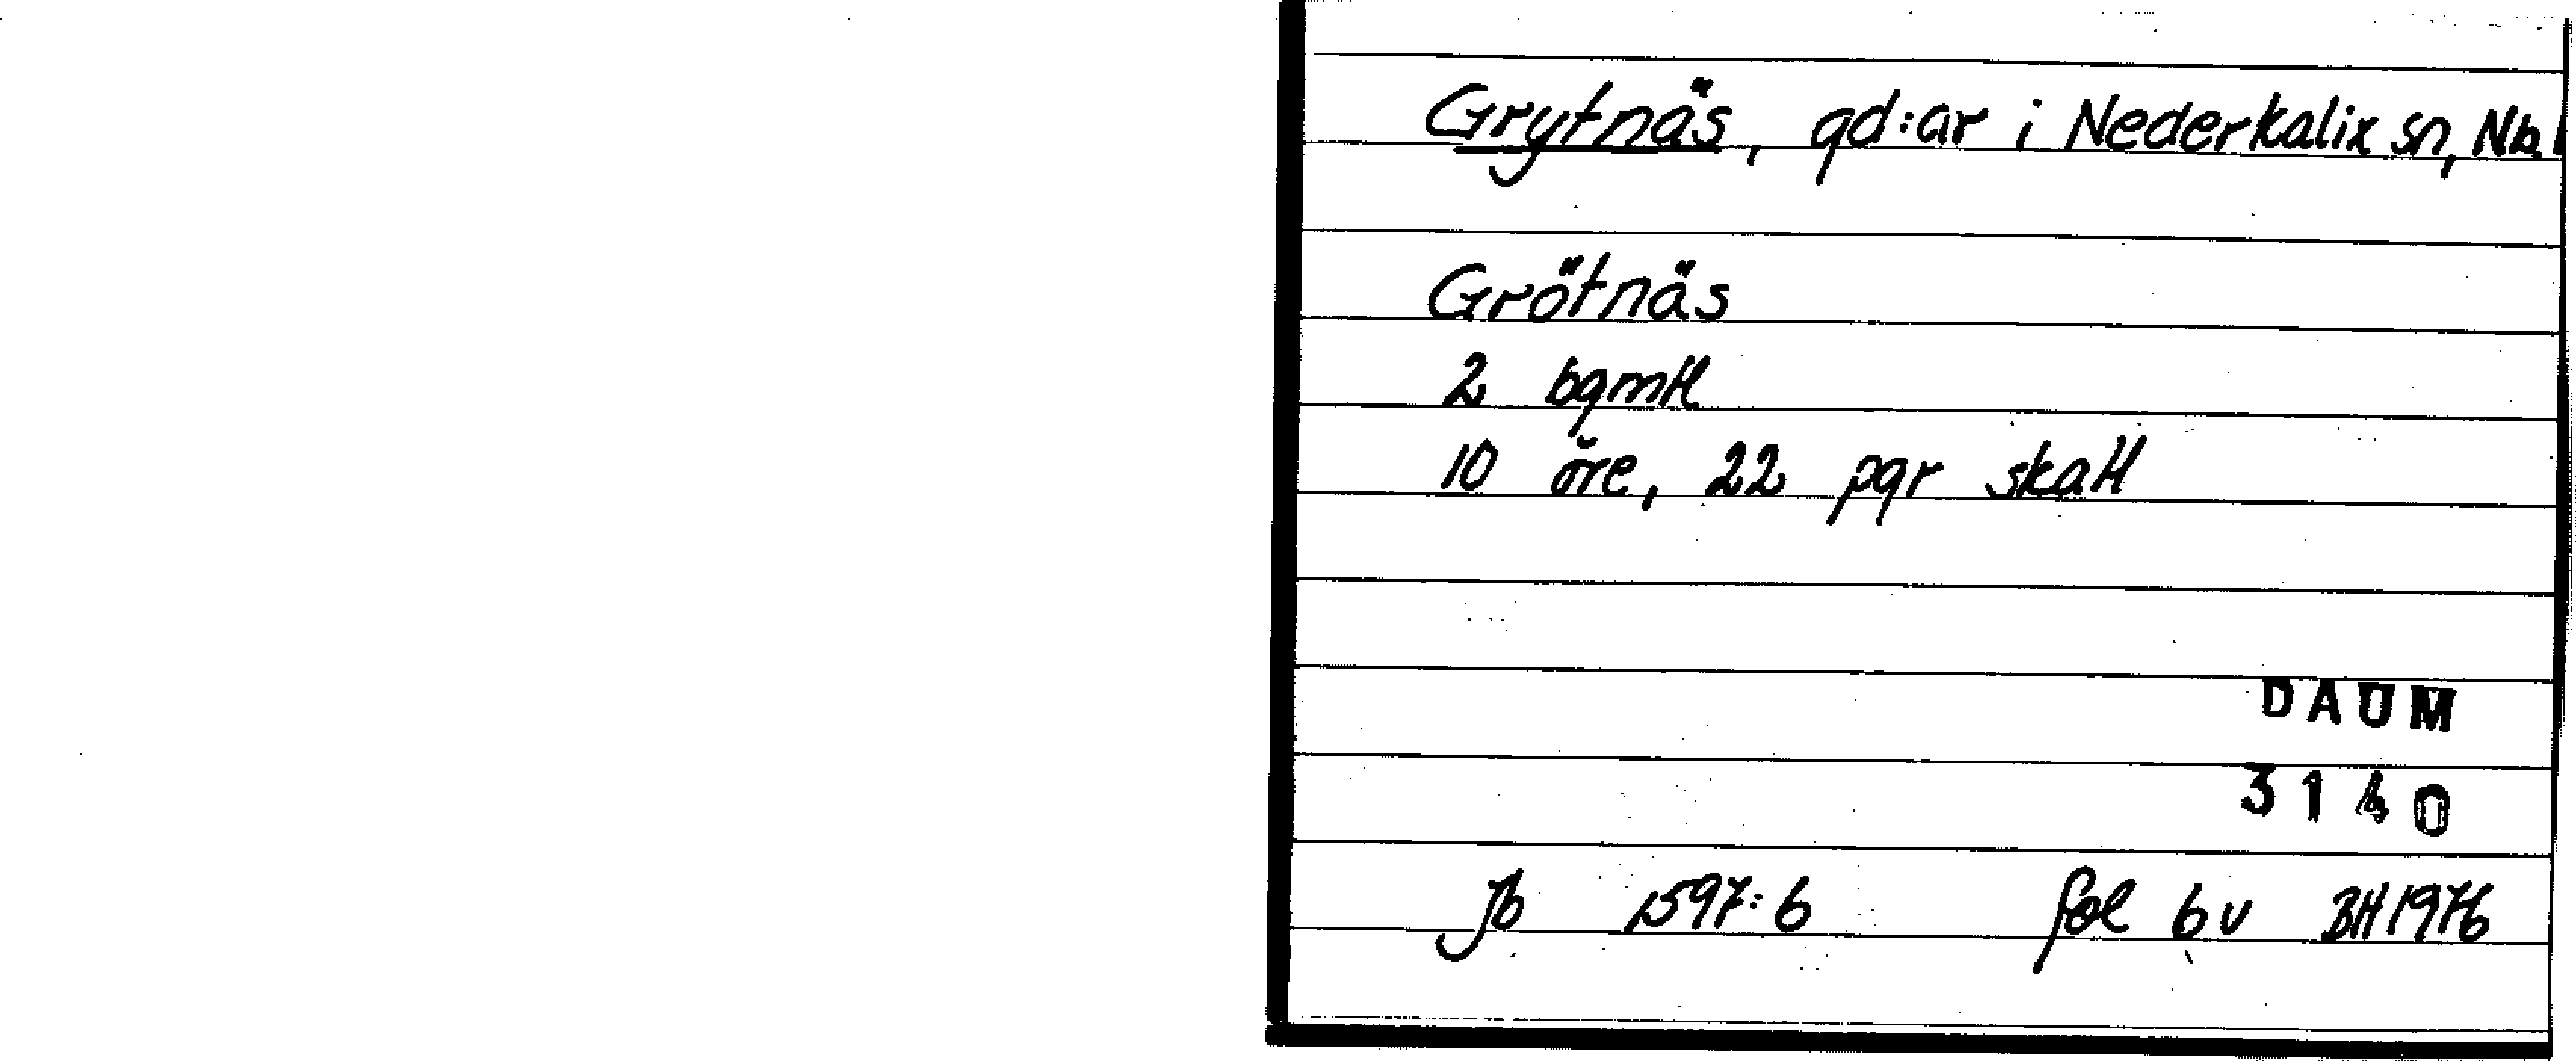 Grytnäs, gd:ar i Nederkalix sn, Nb.
Grötnäs
2 bgmtl
10 öre, 22 pgr skatt
DAUM
3140
Jb 1597:6 fol 6v BH 1976